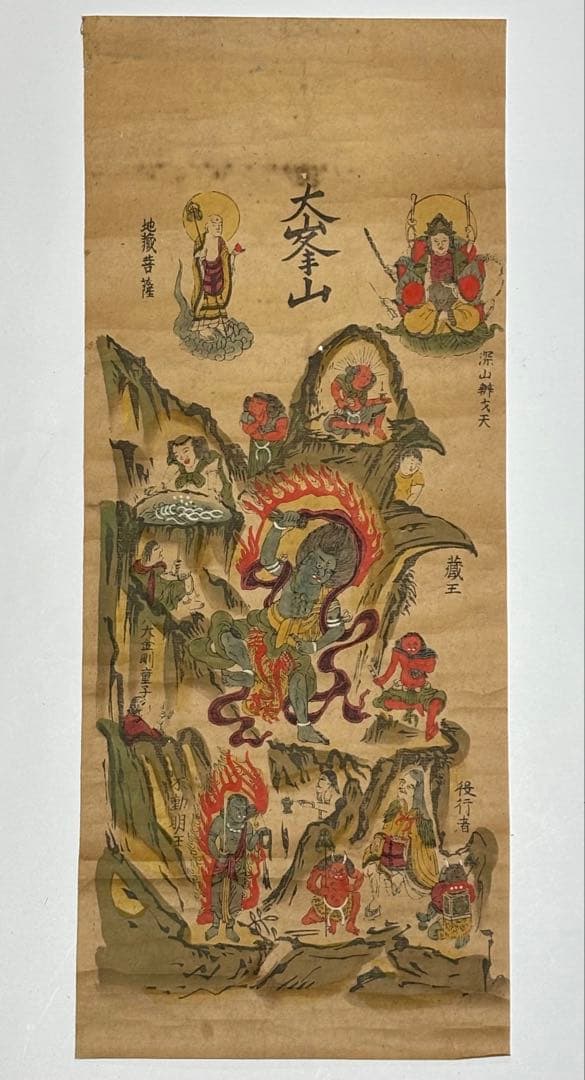 大峯山
深山辨才天
地藏菩薩
藏王
大金剛童子
役行者
不動明王